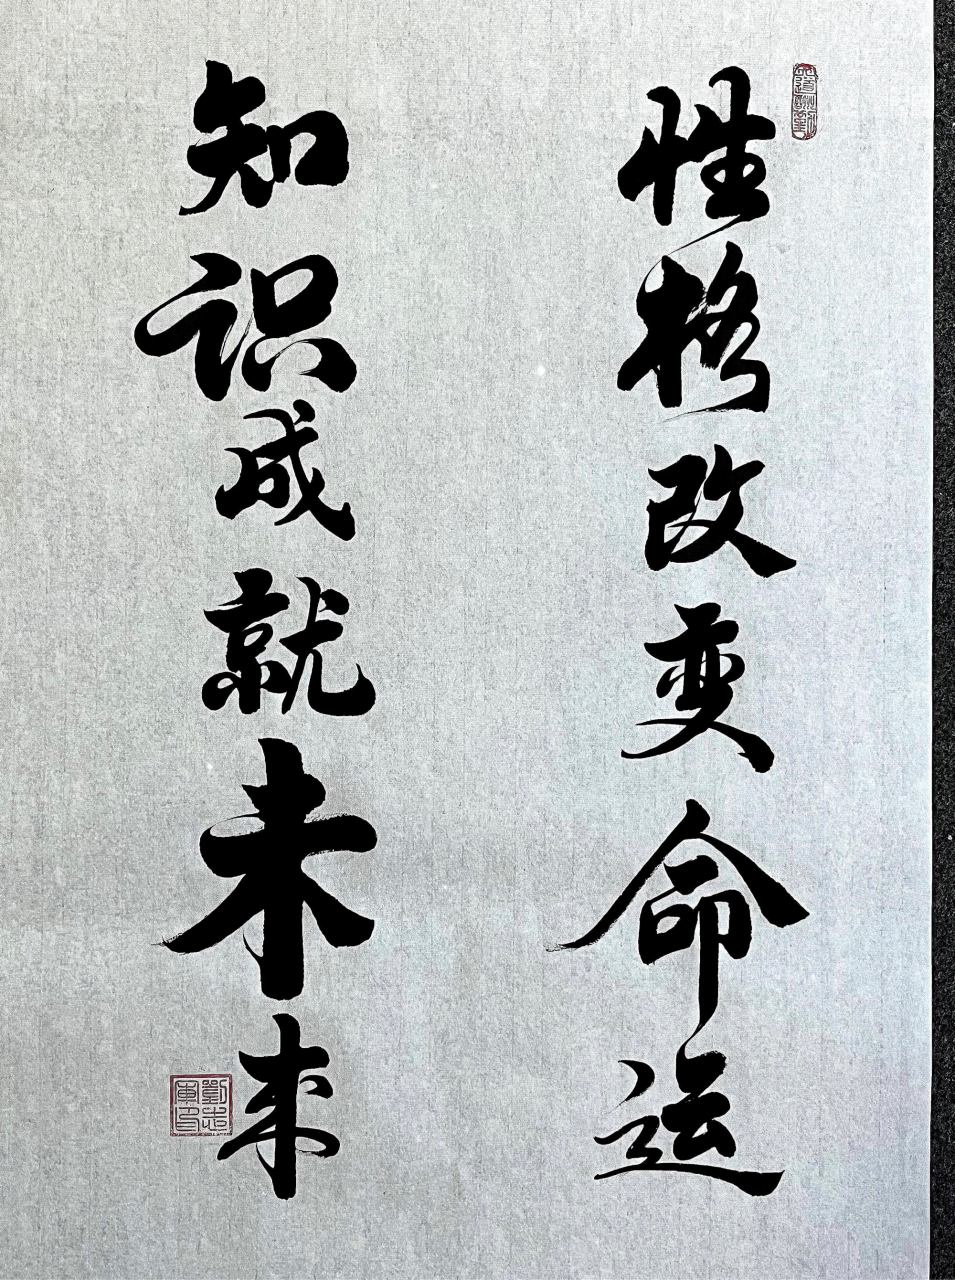 性格改变命运
知识成就未来